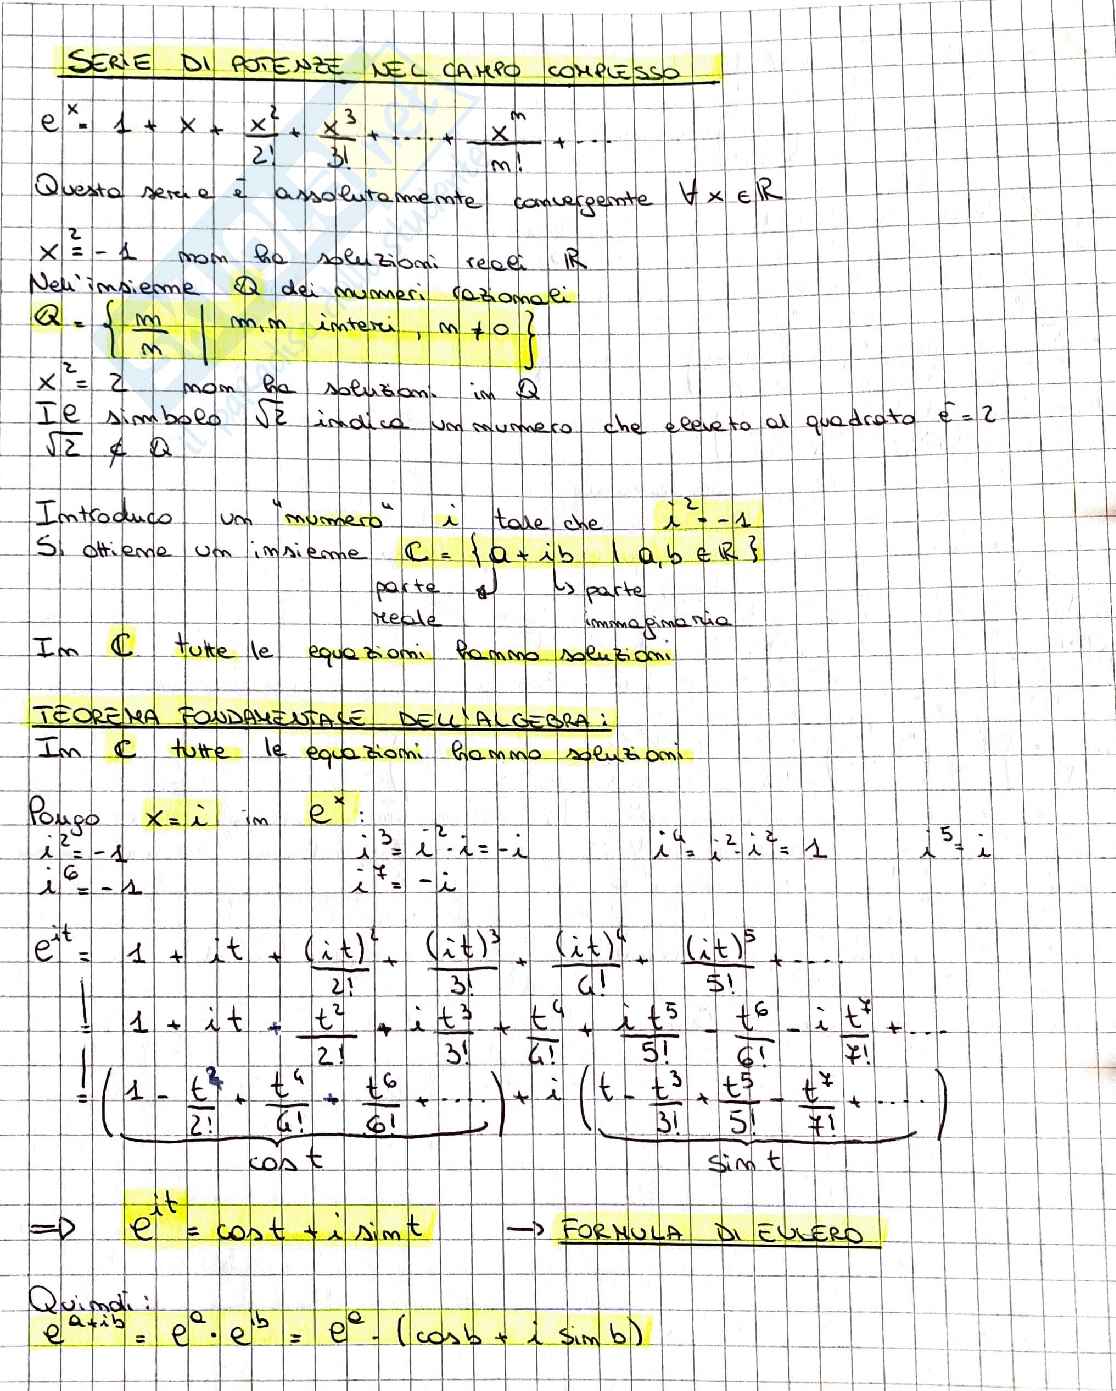 SERIE DI POTENZE NEL CAMPO COMPLESSO
e^x = 1 + x + x^2/2! + x^3/3! + ..... + x^n/n! + ...
Questa serie è assolutamente convergente ∀ x ∈ ℝ
x^2 = -1 non ha soluzioni reali ℝ
Nell'insieme ℚ dei numeri razionali
ℚ = { m/n | m, n interi, n ≠ 0 }
x^2 = 2 non ha soluzioni in ℚ
Il simbolo √2 indica un numero che elevato al quadrato è = 2
√2 ∉ ℚ
Introduco un "numero" i tale che i^2 = -1
Si ottiene un insieme ℂ = {a + ib | a, b ∈ ℝ}
parte ↲ ↳ parte
reale immaginaria
In ℂ tutte le equazioni hanno soluzioni
TEOREMA FONDAMENTALE DELL'ALGEBRA:
In ℂ tutte le equazioni hanno soluzioni
Pongo x = i in e^x:
i^2 = -1 i^3 = i^2 · i = -i i^4 = i^2 · i^2 = 1 i^5 = i
i^6 = -1 i^7 = -i
e^it = 1 + it + (it)^2/2! + (it)^3/3! + (it)^4/4! + (it)^5/5! + .....
= 1 + it + t^2/2! + i t^3/3! + t^4/4! + i t^5/5! - t^6/6! - i t^7/7! + ...
= (1 - t^2/2! + t^4/4! + t^6/6! + .....) + i (t - t^3/3! + t^5/5! - t^7/7! + .....)
cos t sin t
⇒ e^it = cos t + i sin t → FORMULA DI EULERO
Quindi:
e^a+ib = e^a · e^ib = e^a · (cos b + i sin b)